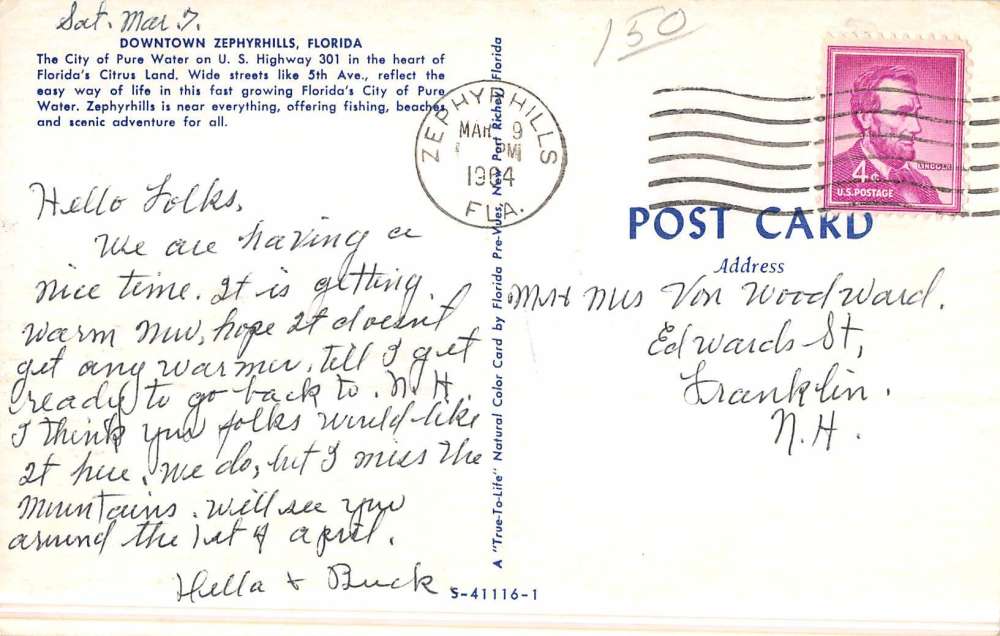 Sat. Mar 7.
DOWNTOWN ZEPHYRHILLS, FLORIDA
The City of Pure Water on U. S. Highway 301 in the heart of
Florida's Citrus Land. Wide streets like 5th Ave., reflect the
easy way of life in this fast growing Florida's City of Pure
Water. Zephyrhills is near everything, offering fishing, beaches
and scenic adventure for all.
Hello Folks,
We are having a
nice time. It is getting
warm now, hope it doesn't
get any warmer, till I get
ready to go back to. N.H.
I think you folks would like
it here, we do, but I miss the
mountains. will see you
around the 1st of april.
Hella & Buck
S-41116-1
A "True-To-Life" Natural Color Card by Florida Pre-Vues, New Port Richey, Florida
150
ZEPHYRHILLS
MAR 9
PM
1964
FLA.
LINCOLN
4¢
U.S. POSTAGE
POST CARD
Address
Mr & Mrs Von Woodward.
Edwards St,
Franklin.
N.H.